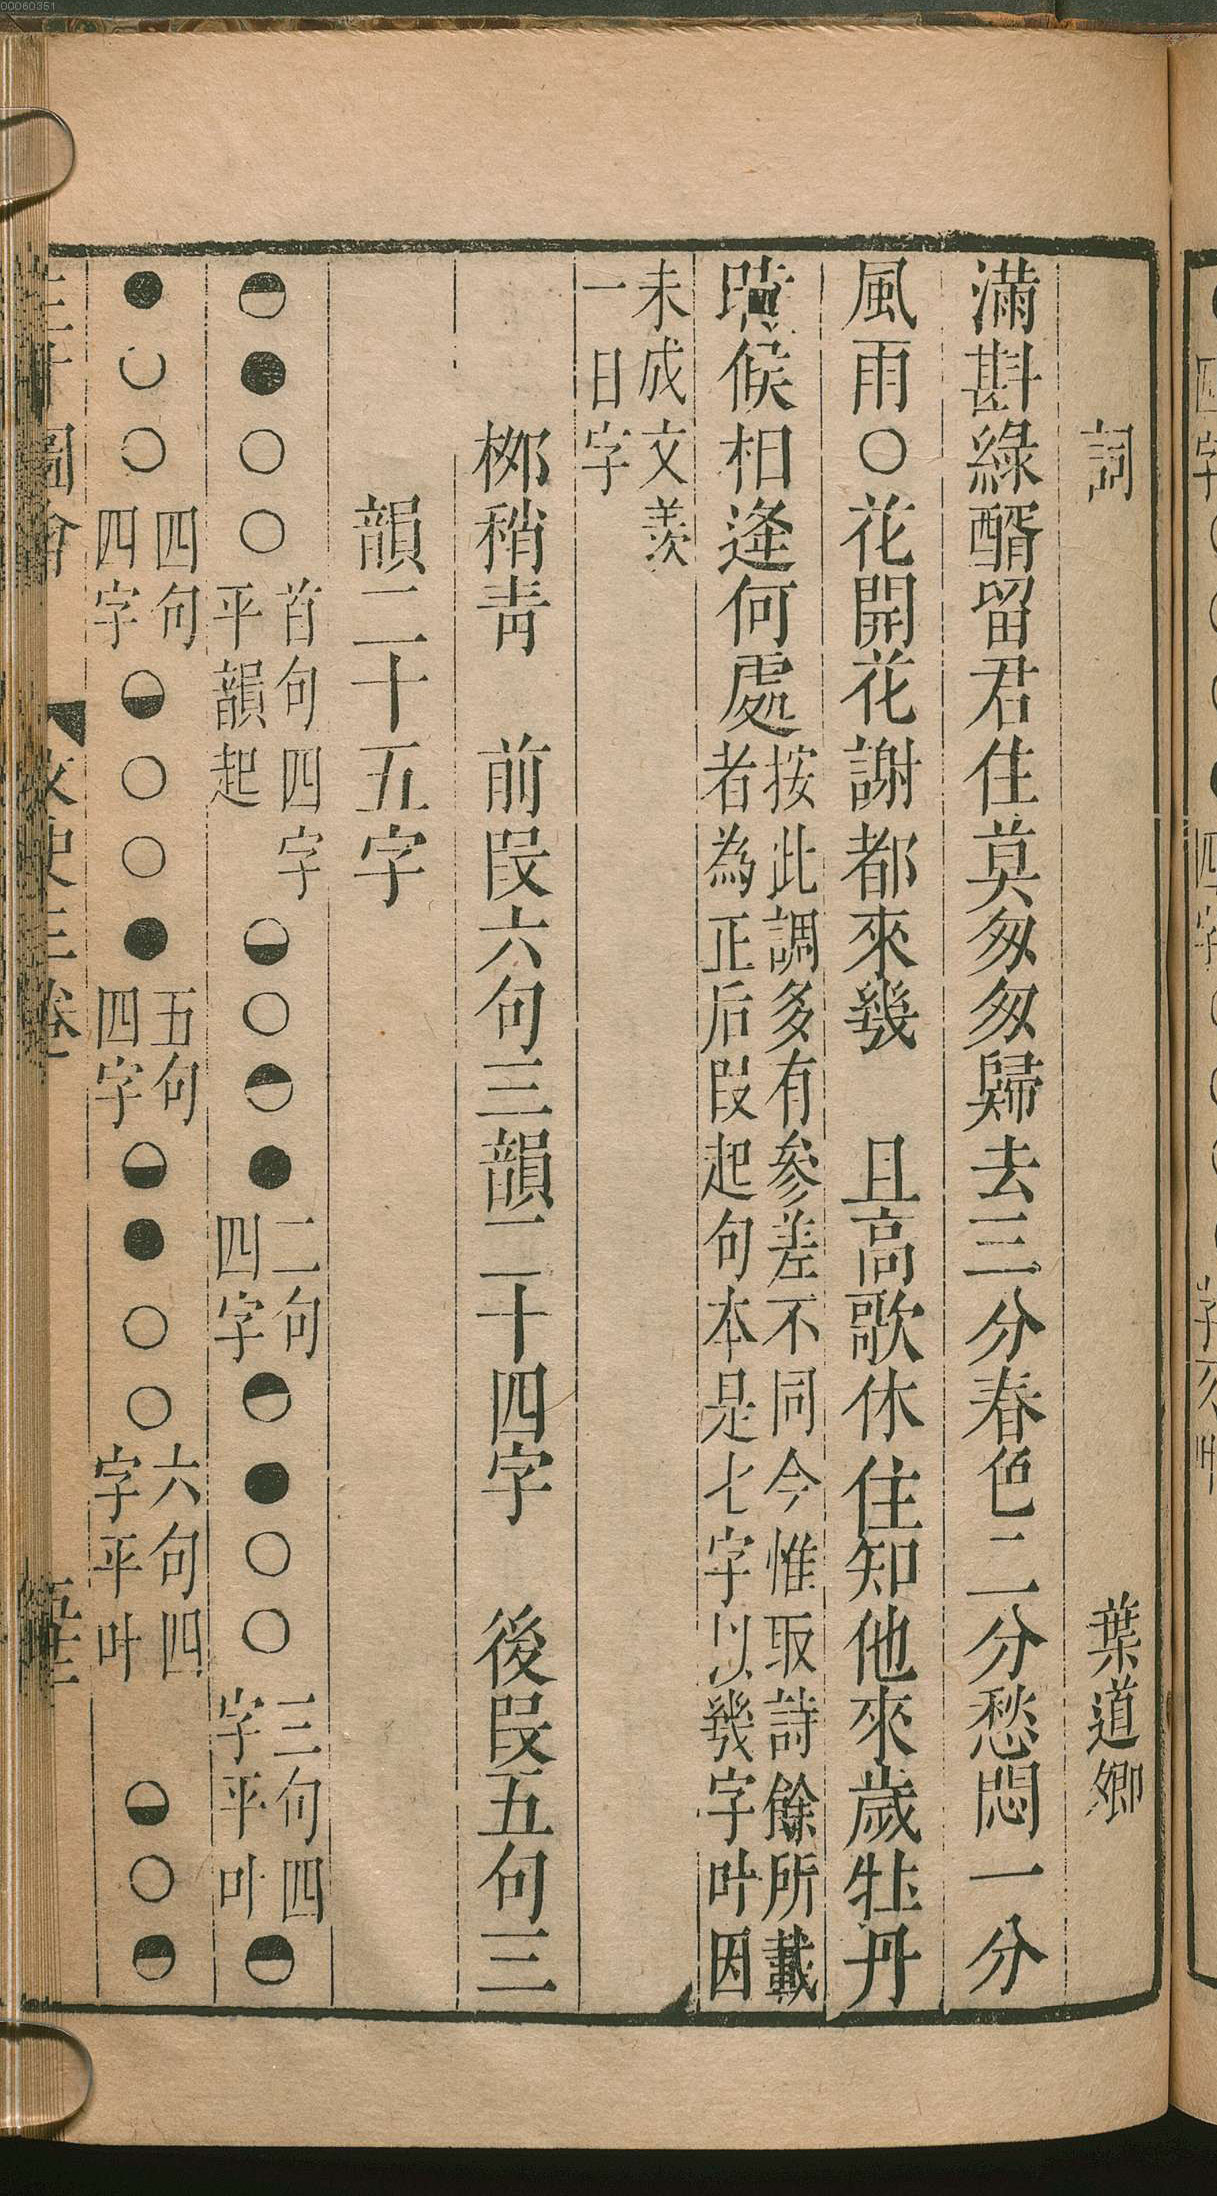 00060351
詞　葉道卿
滿斟綠醑留君住莫匆匆歸去三分春色二分愁悶一分
風雨○花開花謝都來幾　且高歌休住知他來歲牡丹
時候相逢何處按此調多有參差不同今惟取詩餘所載
者為正后段起句本是七字以幾字叶因
未成文羨
一日字
柳稍青　前段六句三韻二十四字　後段五句三
韻二十五字
◓●○○首句四字平韻起◒○◓●二句四字◓●○○三句四字平叶◓
●○○四句四字◒○○●五句四字◒●○○六句四字平叶　◒○◓
三才圖會　文史三卷